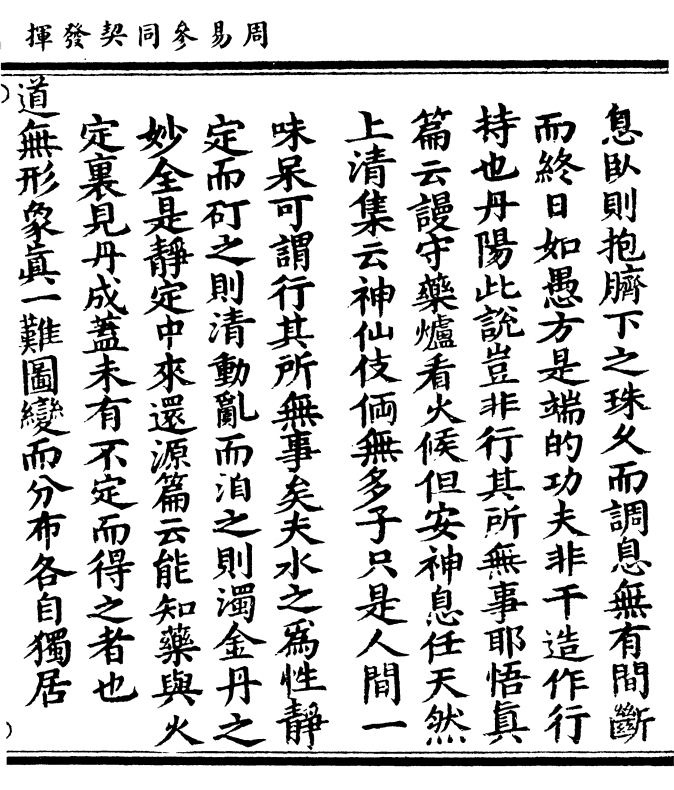 周易參同契發揮
息臥則抱臍下之珠久而調息無有間斷
而終日如愚方是端的功夫非干造作行
持也丹陽此說豈非行其所無事耶悟眞
篇云謾守藥爐看火候但安神息任天然
上清集云神仙伎倆無多子只是人間一
味呆可謂行其所無事矣夫水之爲性靜
定而矴之則清動亂而汩之則濁金丹之
妙全是靜定中來還源篇云能知藥與火
定裏見丹成蓋未有不定而得之者也
道無形象眞一難圖變而分布各自獨居